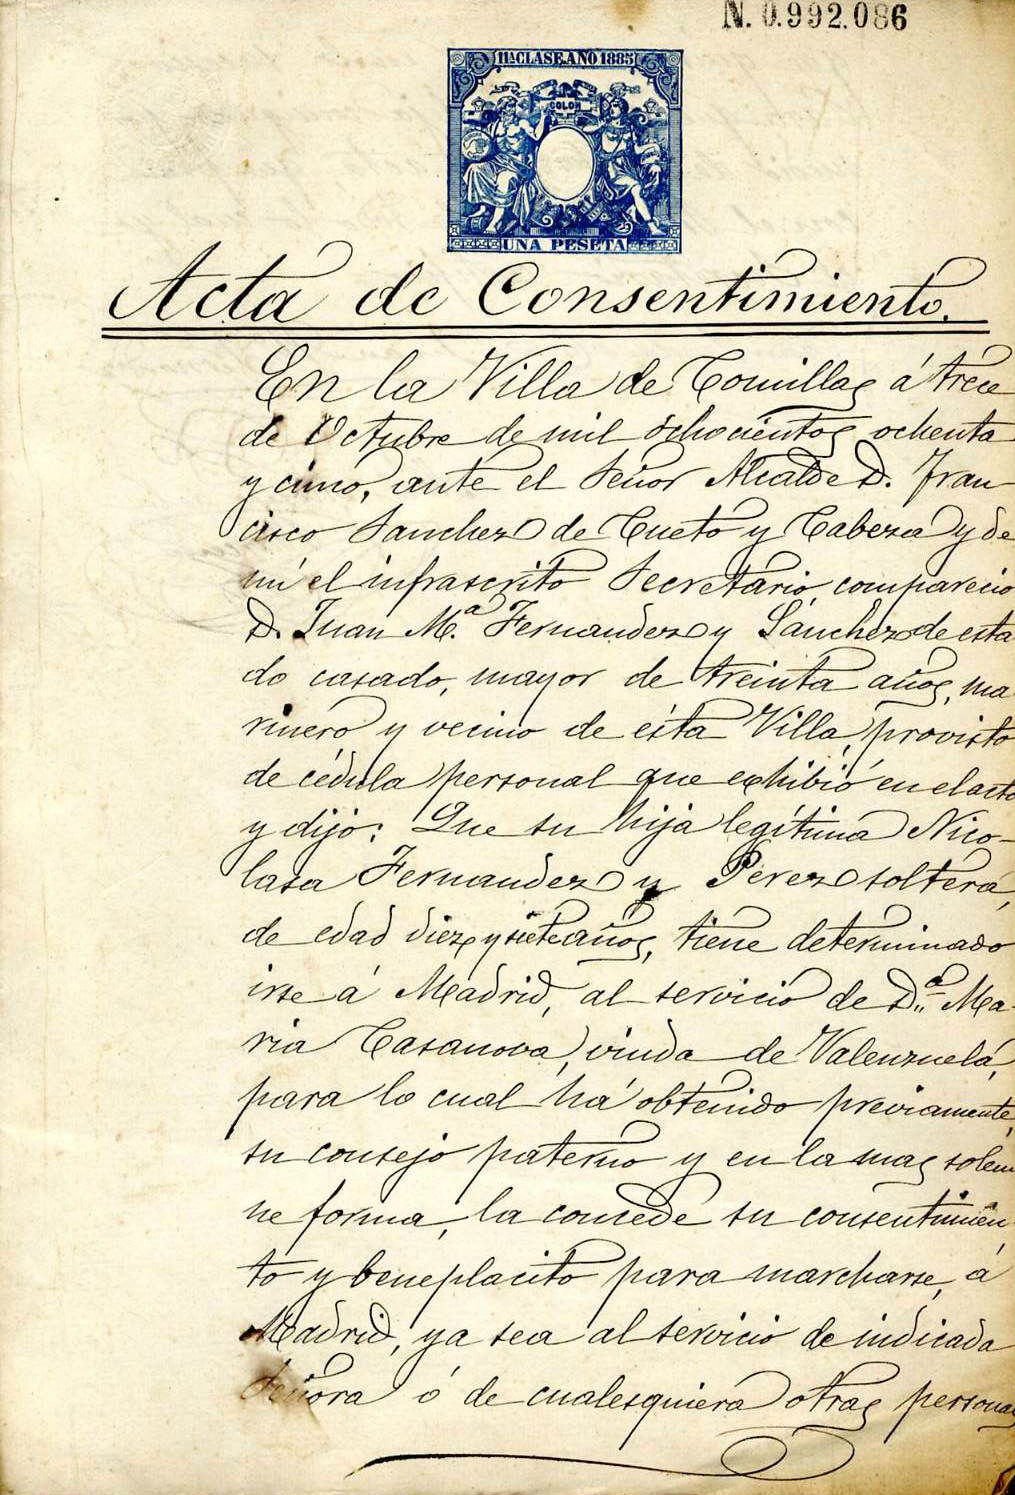 N. 0.992.086
11ª CLASE. AÑO 1885
COLON
UNA PESETA
Acta de Consentimiento.
En la Villa de Comillas á trece
de Octubre de mil ochocientos ochenta
y cinco, ante el Señor Alcalde D. Fran-
cisco Sanchez de Cueto y Cabeza y de
mi el infrascrito Secretario, comparecio
D. Juan M.ª Fernandez y Sánchez de esta
do casado, mayor de treinta años, ma
rinero y vecino de ésta Villa, provisto
de cédula personal que exhibió en el acto
y dijo: Que su hija legítima Nico-
lasa Fernandez y Perez soltera,
de edad diez y siete años, tiene determinado
irse á Madrid, al servicio de D.ª Ma-
ria Casanova, viuda de Valenzuela,
para lo cual há obtenido previamente,
su consejo paterno y en la mas solem
ne forma, la concede su consentimien
to y beneplacito para marcharse, á
Madrid, ya sea al servicio de indicada
Señora ó de cualesquiera otras personas